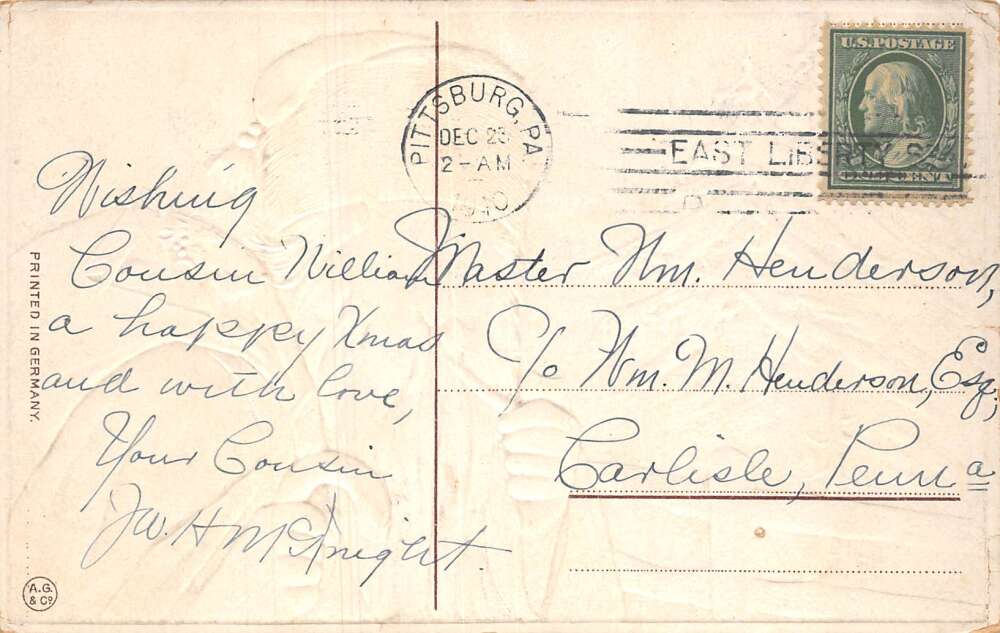 PITTSBURG, PA.
DEC 23
2-AM
1910
EAST LIBERTY S
U.S. POSTAGE
Wishing
Cousin William
a happy Xmas
and with love,
Your Cousin
McKnight
Master Wm. Henderson,
c/o Wm. M. Henderson, Esq,
Carlisle, Penna
PRINTED IN GERMANY.
A.G.
& Co